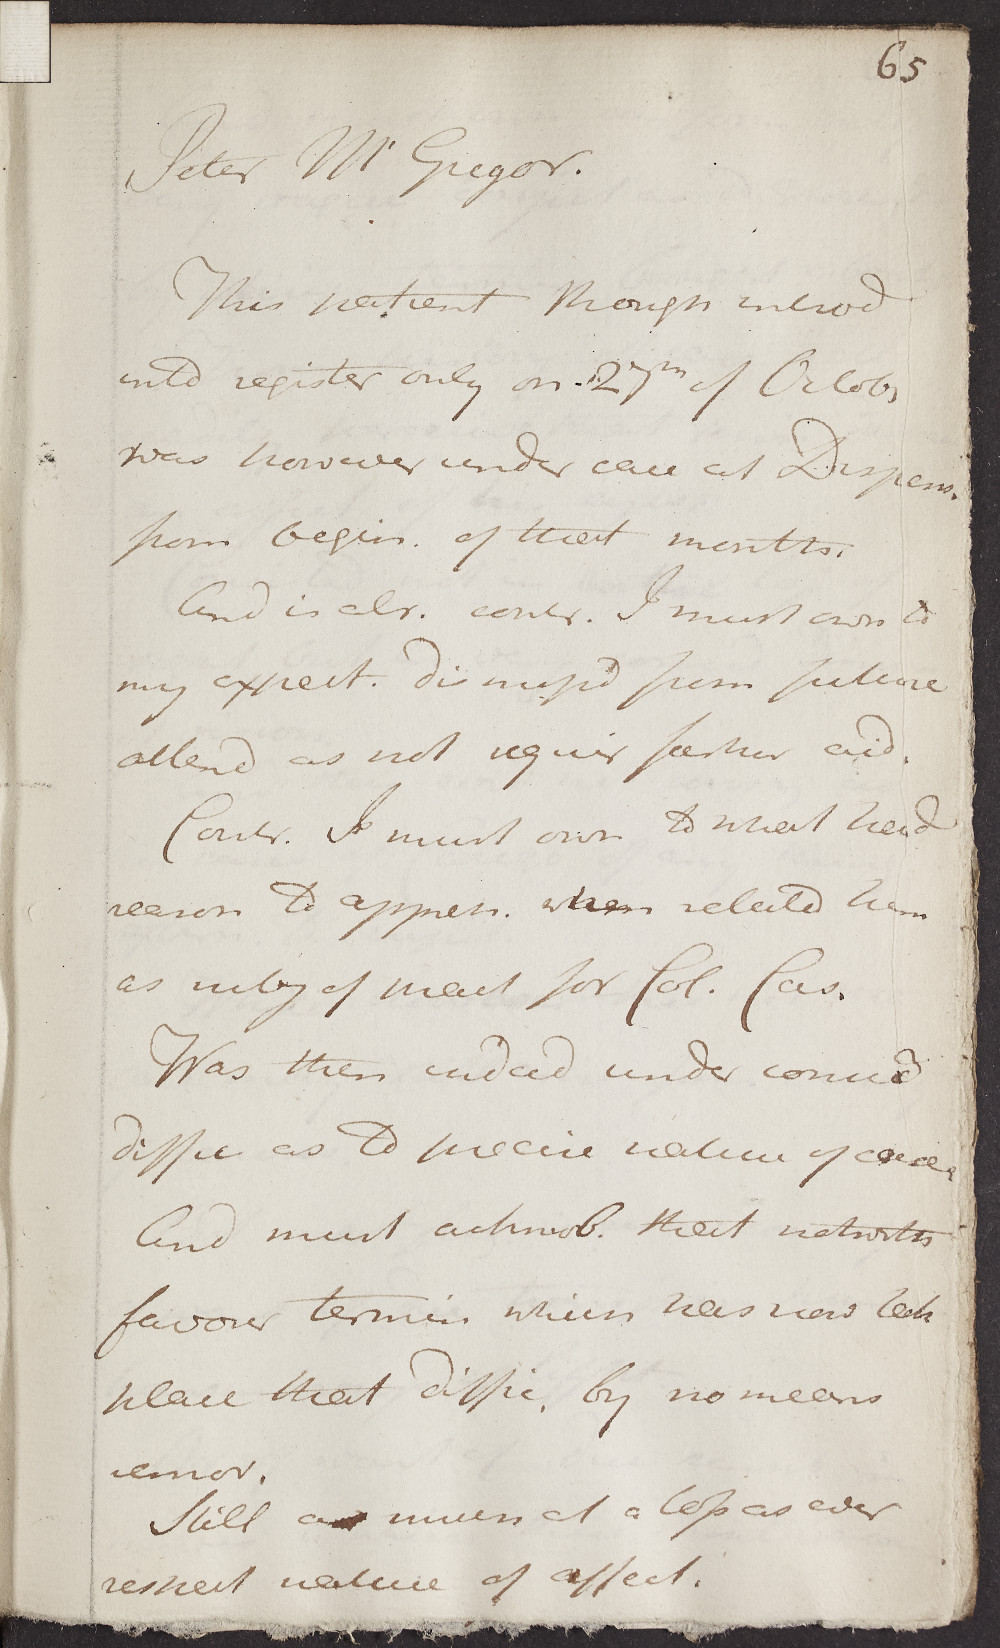 65
Peter McGregor.
This patient though introd
into register only on 27th of Octobr
was however under care at Dispens.
from begin. of that month.
And is alr. contr. I must own to
my expect. dismiss'd from future
attend as not requir farther aid.
Contr. I must own to what had
reason to appreh. when selected him
as subj of treat for Col. Cas.
Was then indeed under consid
diffic as to precise nature of case
And must acknowl. that notwith
favour termin which has now tak
place that diffic. by no means
remov.
Still as much at a loss as ever
respect nature of affect.